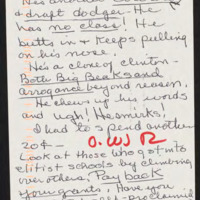 & draft dodger- He
has no class! He
butts in & keeps pulling
on his nose.
He's a clone of clinton-
Both Big Beaks and
arrogance beyond reason.
He chews up his words
and ugh! He smirks,
I had to spend another
20¢ -
Look at those who got into
elitist schools by climbing
over others, Pay back
your grants, Have you